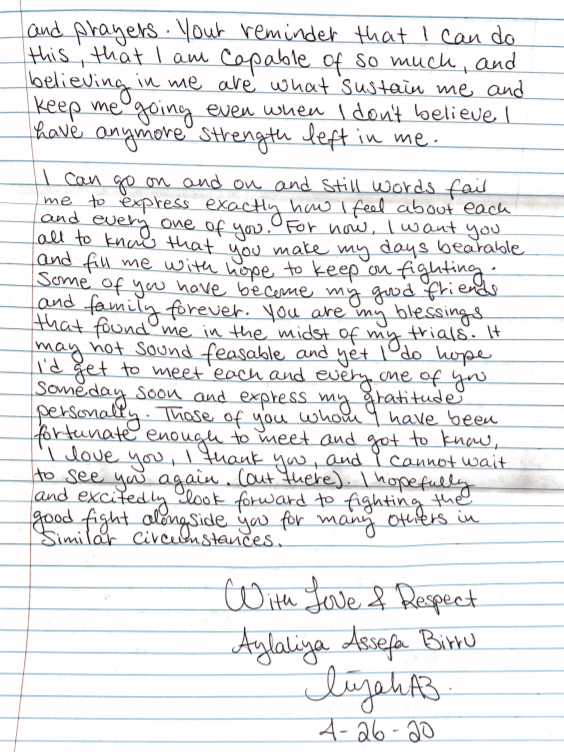 and prayers. Your reminder that I can do
this, that I am capable of so much, and
believing in me are what sustain me and
keep me going even when I don't believe I
have anymore strength left in me.
I can go on and on and still words fail
me to express exactly how I feel about each
and every one of you. For now, I want you
all to know that you make my days bearable
and fill me with hope to keep on fighting.
Some of you have become my good friends
and family forever. You are my blessings
that found me in the midst of my trials. It
may not sound feasable and yet I do hope
i'd get to meet each and every one of you
someday soon and express my gratitude
personally. Those of you whom I have been
fortunate enough to meet and got to know,
I love you, I thank you, and I cannot wait
to see you again. (out there). I hopefully
and excitedly look forward to fighting the
good fight alongside you for many others in
similar circumstances.
With Love & Respect
Aylaliya Assefa Birru
LiyahAB.
4-26-20